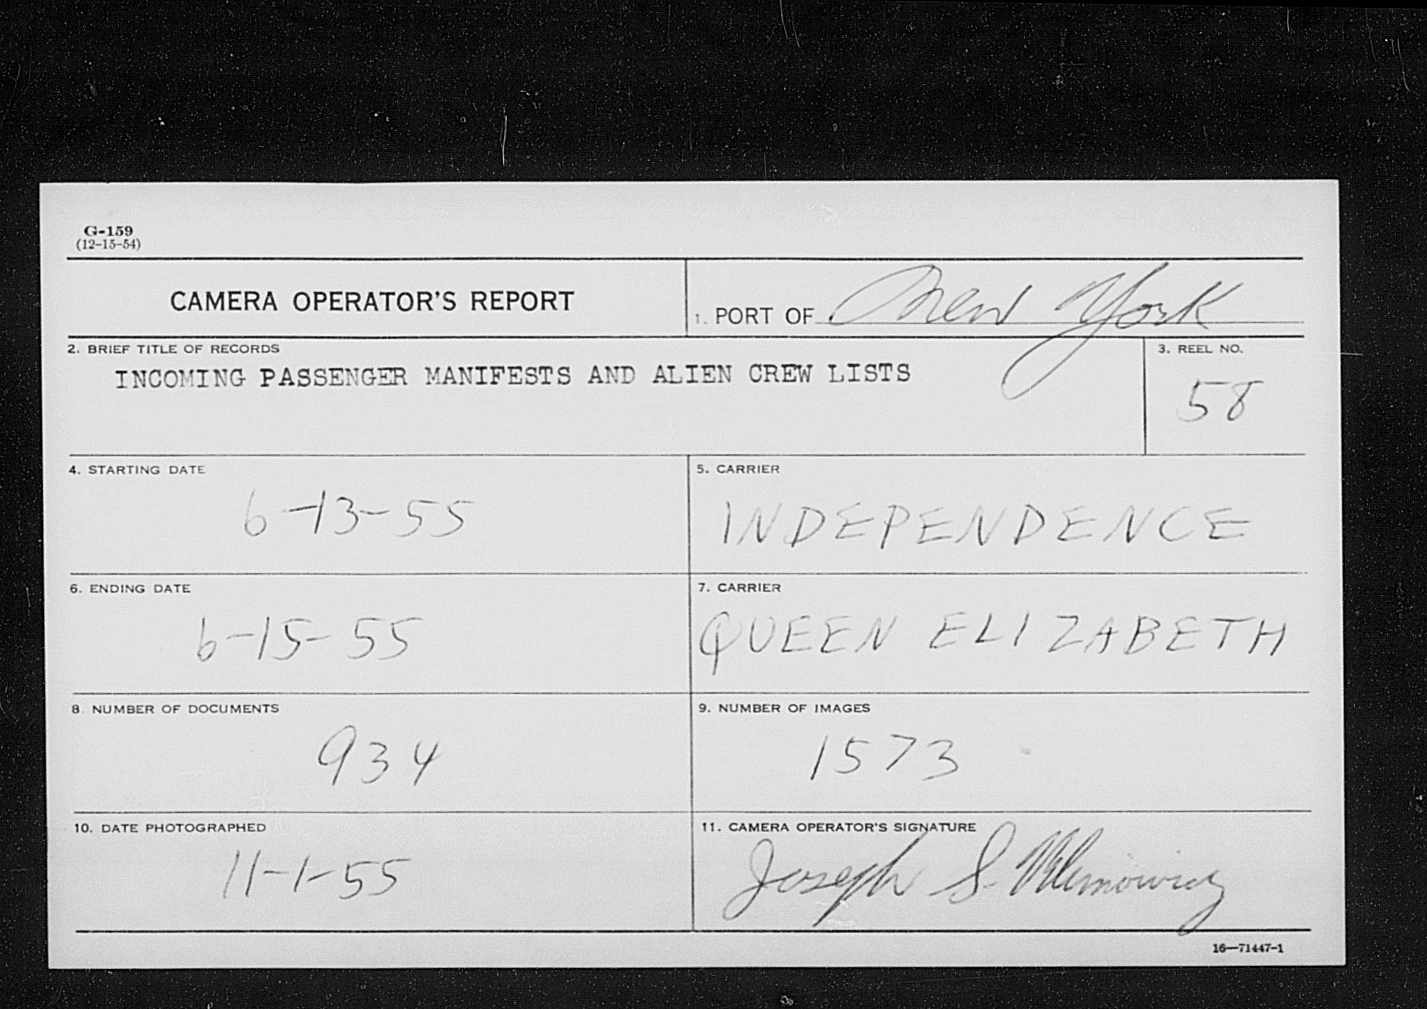 G-159
(12-15-54)
CAMERA OPERATOR'S REPORT
1. PORT OF New York
2. BRIEF TITLE OF RECORDS
INCOMING PASSENGER MANIFESTS AND ALIEN CREW LISTS
3. REEL NO.
58
4. STARTING DATE
6-13-55
5. CARRIER
INDEPENDENCE
6. ENDING DATE
6-15-55
7. CARRIER
QUEEN ELIZABETH
8. NUMBER OF DOCUMENTS
934
9. NUMBER OF IMAGES
1573
10. DATE PHOTOGRAPHED
11-1-55
11. CAMERA OPERATOR'S SIGNATURE
Joseph S.
16—71447-1